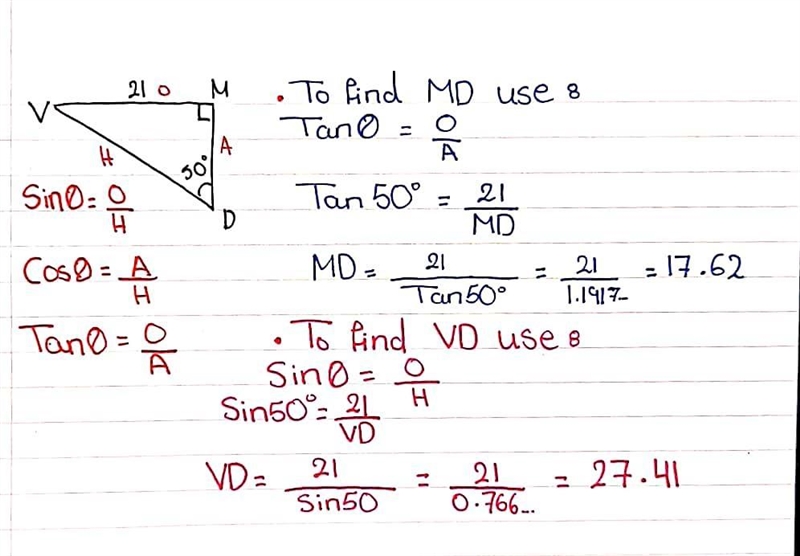 21 O M
V
H
A
50°
D
Sinθ = O/H
Cosθ = A/H
Tanθ = O/A
• To find MD use :
Tanθ = O/A
Tan 50° = 21/MD
MD = 21/Tan50° = 21/1.1917... = 17.62
• To find VD use :
Sinθ = O/H
Sin50° = 21/VD
VD = 21/Sin50 = 21/0.766... = 27.41